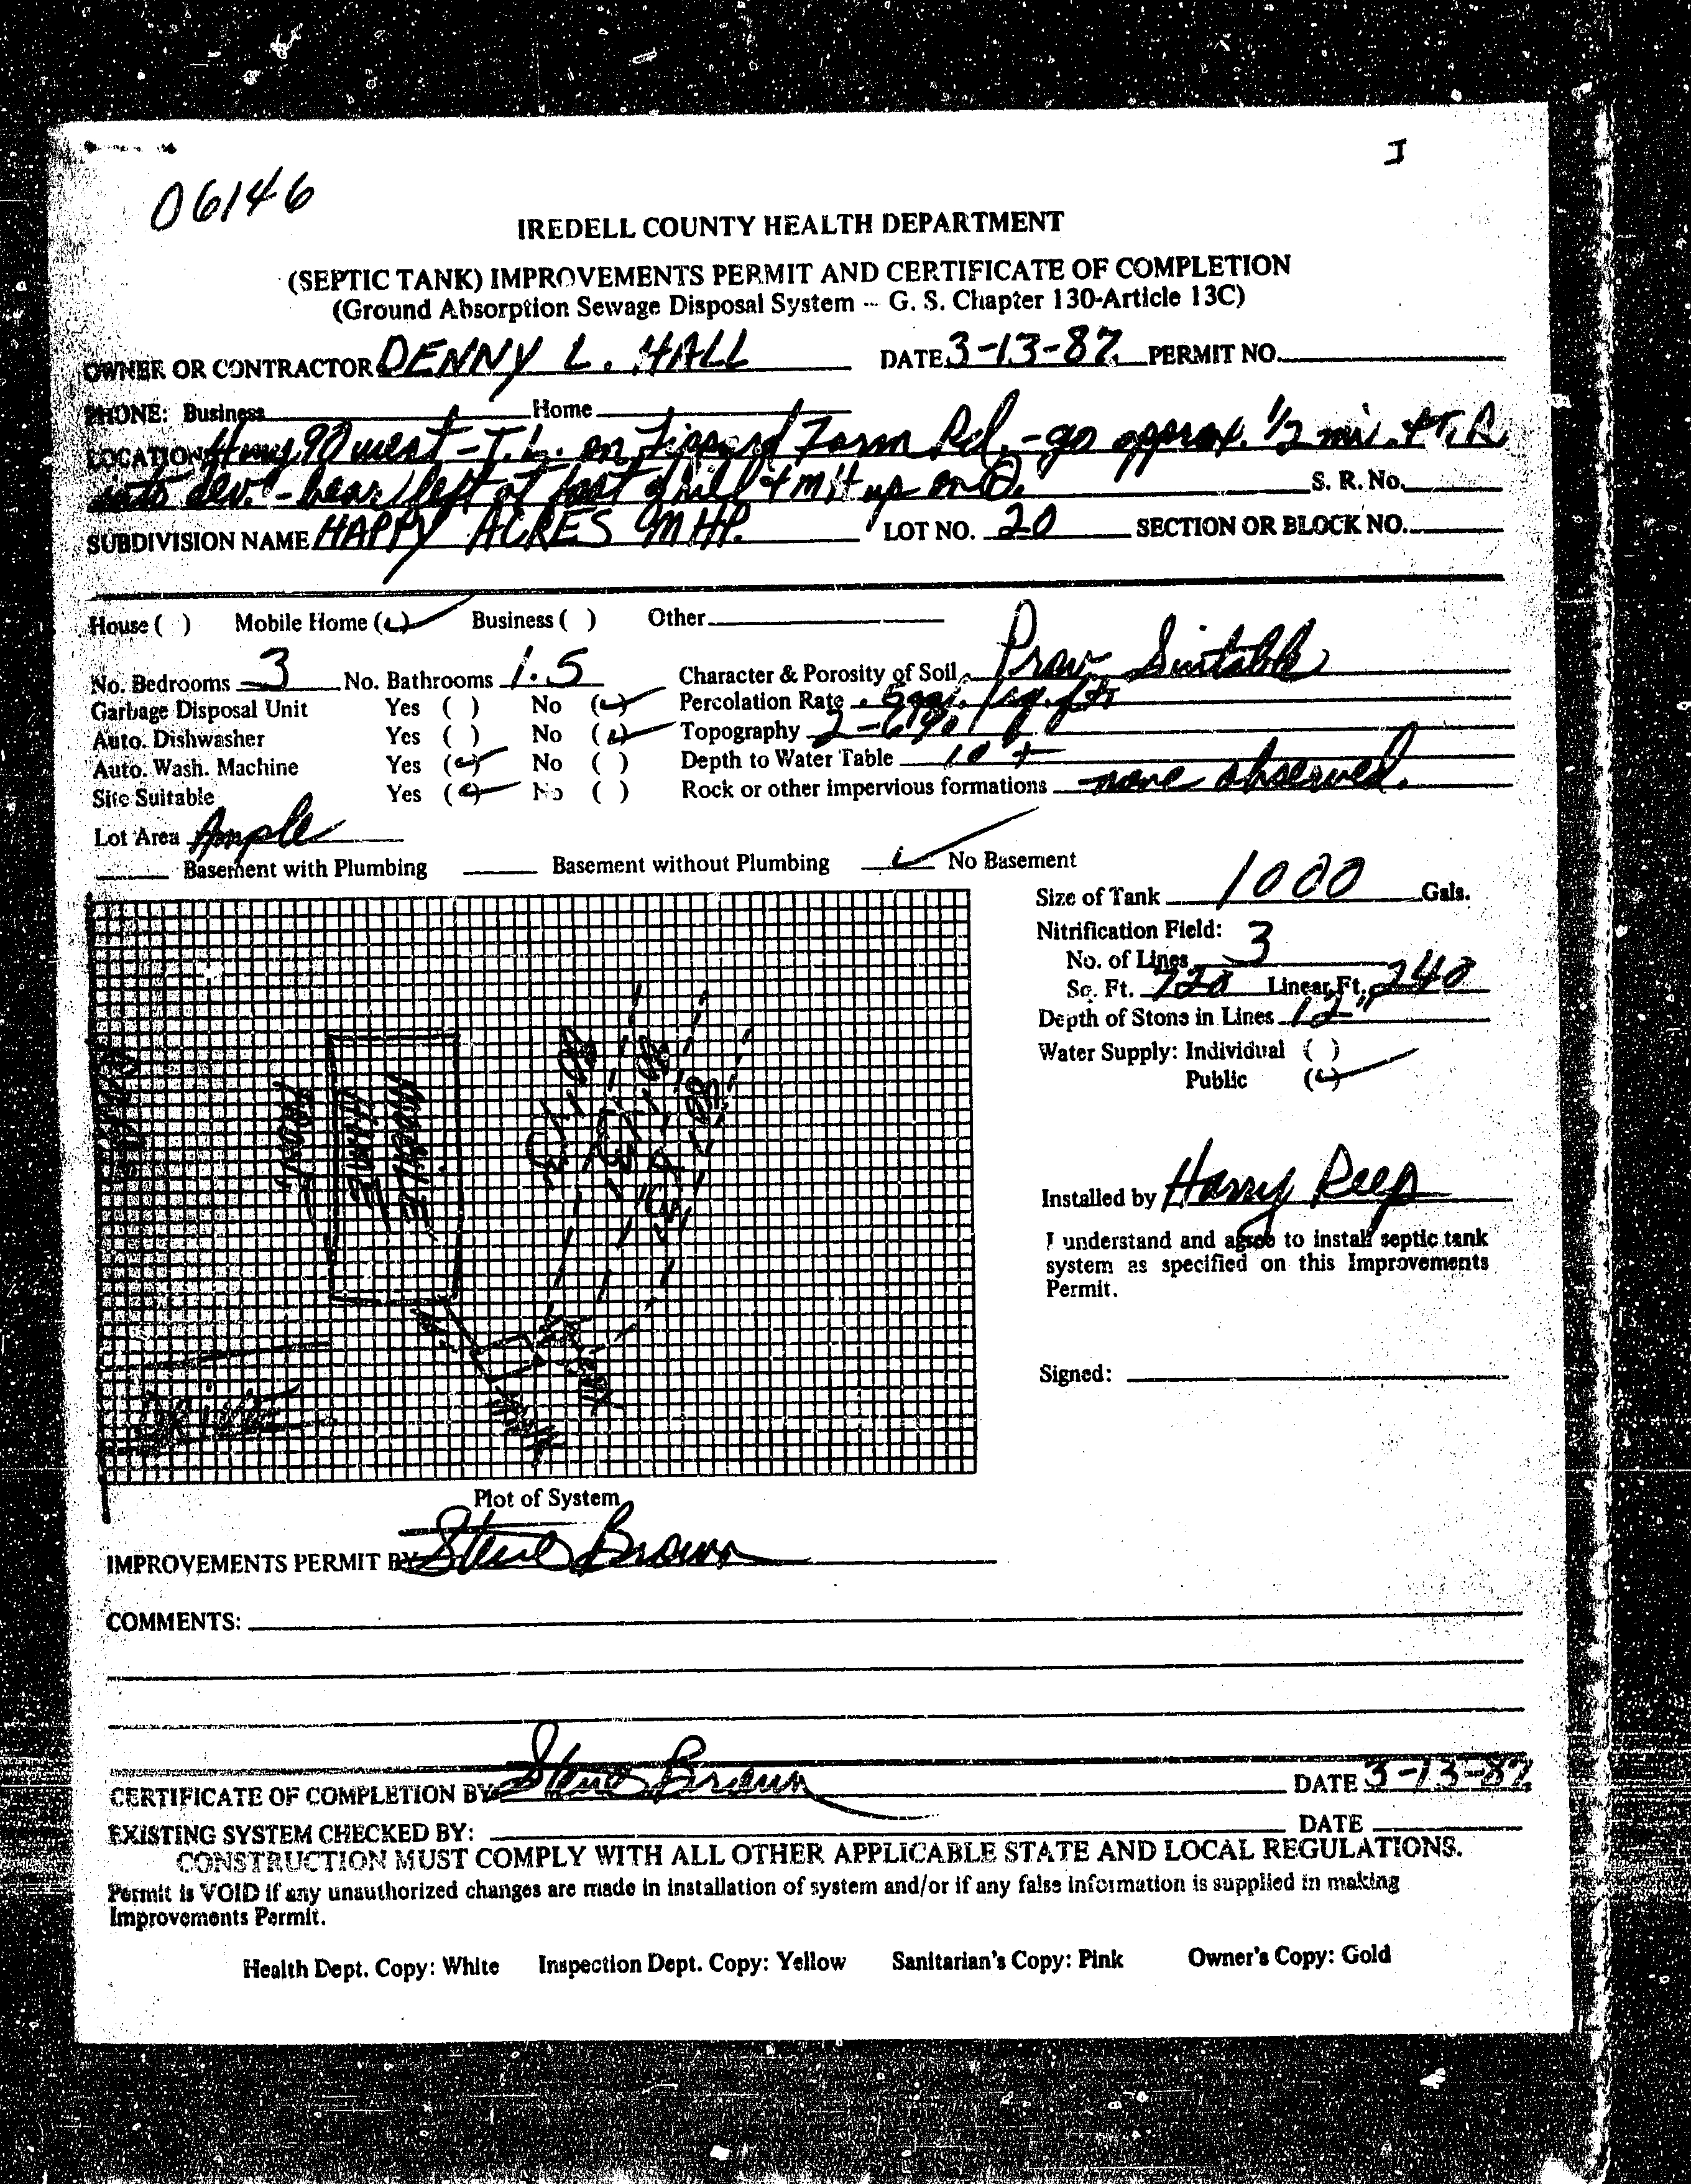 I
06146
IREDELL COUNTY HEALTH DEPARTMENT
(SEPTIC TANK) IMPROVEMENTS PERMIT AND CERTIFICATE OF COMPLETION
(Ground Absorption Sewage Disposal System -- G. S. Chapter 130-Article 13C)
OWNER OR CONTRACTOR DENNY L. HALL DATE 3-13-87 PERMIT NO.
PHONE: Business Home
LOCATION Hwy 90 west - T.L. on Farm Rd. - go approx. 1/2 mi. + T.R.
into dev. - bear left at + up on
S. R. No.
SUBDIVISION NAME HAPPY ACRES MHP. LOT NO. 20 SECTION OR BLOCK NO.
House ( ) Mobile Home (✓) Business ( ) Other
No. Bedrooms 3 No. Bathrooms 1.5 Character & Porosity of Soil Prov. Suitable
Garbage Disposal Unit Yes ( ) No (✓) Percolation Rate .5 gal. /sq. ft.
Auto. Dishwasher Yes ( ) No (✓) Topography 2-6%
Auto. Wash. Machine Yes (✓) No ( ) Depth to Water Table 10 +
Site Suitable Yes (✓) No ( ) Rock or other impervious formations none observed.
Lot Area Ample
Basement with Plumbing Basement without Plumbing ✓ No Basement
Size of Tank 1000 Gals.
Nitrification Field:
No. of Lines 3
Sq. Ft. 720 Linear Ft. 240
Depth of Stone in Lines 12"
Water Supply: Individual ( )
Public (✓)
FRONT
MOBILE HOME
Installed by Harry Reep
I understand and agree to install septic tank
system as specified on this Improvements
Permit.
Signed:
Plot of System
IMPROVEMENTS PERMIT BY Steve Brown
COMMENTS:
CERTIFICATE OF COMPLETION BY Steve Brown DATE 3-13-87
EXISTING SYSTEM CHECKED BY: DATE
CONSTRUCTION MUST COMPLY WITH ALL OTHER APPLICABLE STATE AND LOCAL REGULATIONS.
Permit is VOID if any unauthorized changes are made in installation of system and/or if any false information is supplied in making
Improvements Permit.
Health Dept. Copy: White Inspection Dept. Copy: Yellow Sanitarian's Copy: Pink Owner's Copy: Gold